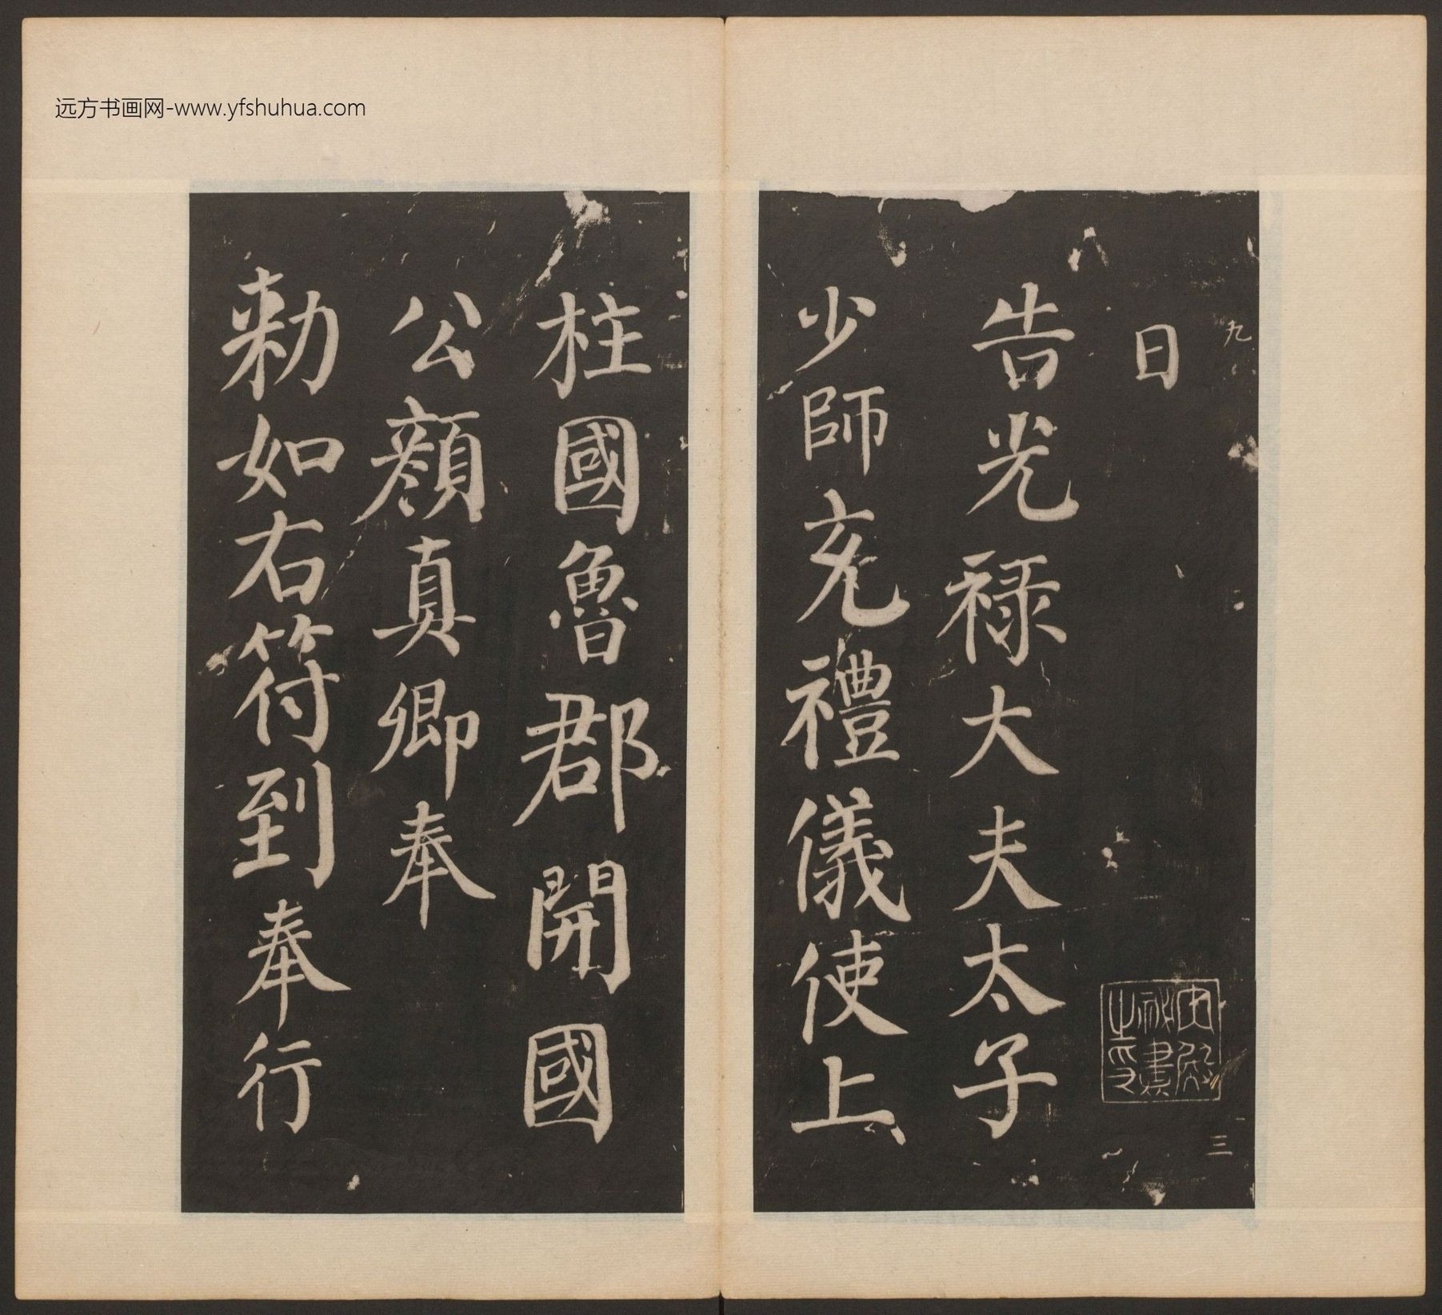 远方书画网-www.yfshuhua.com
九
日
告光禄大夫太子
少師充禮儀使上
柱國魯郡開國
公顔真卿奉
勅如右符到奉行
三